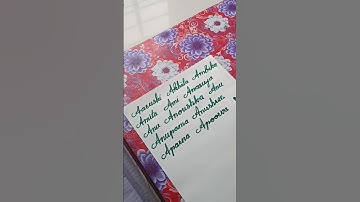 Aarushi Akhila Ambika
Amila Ami Amasuya
Anu Anoushka Anu
Anupama Anushree
Aparna Apoorva